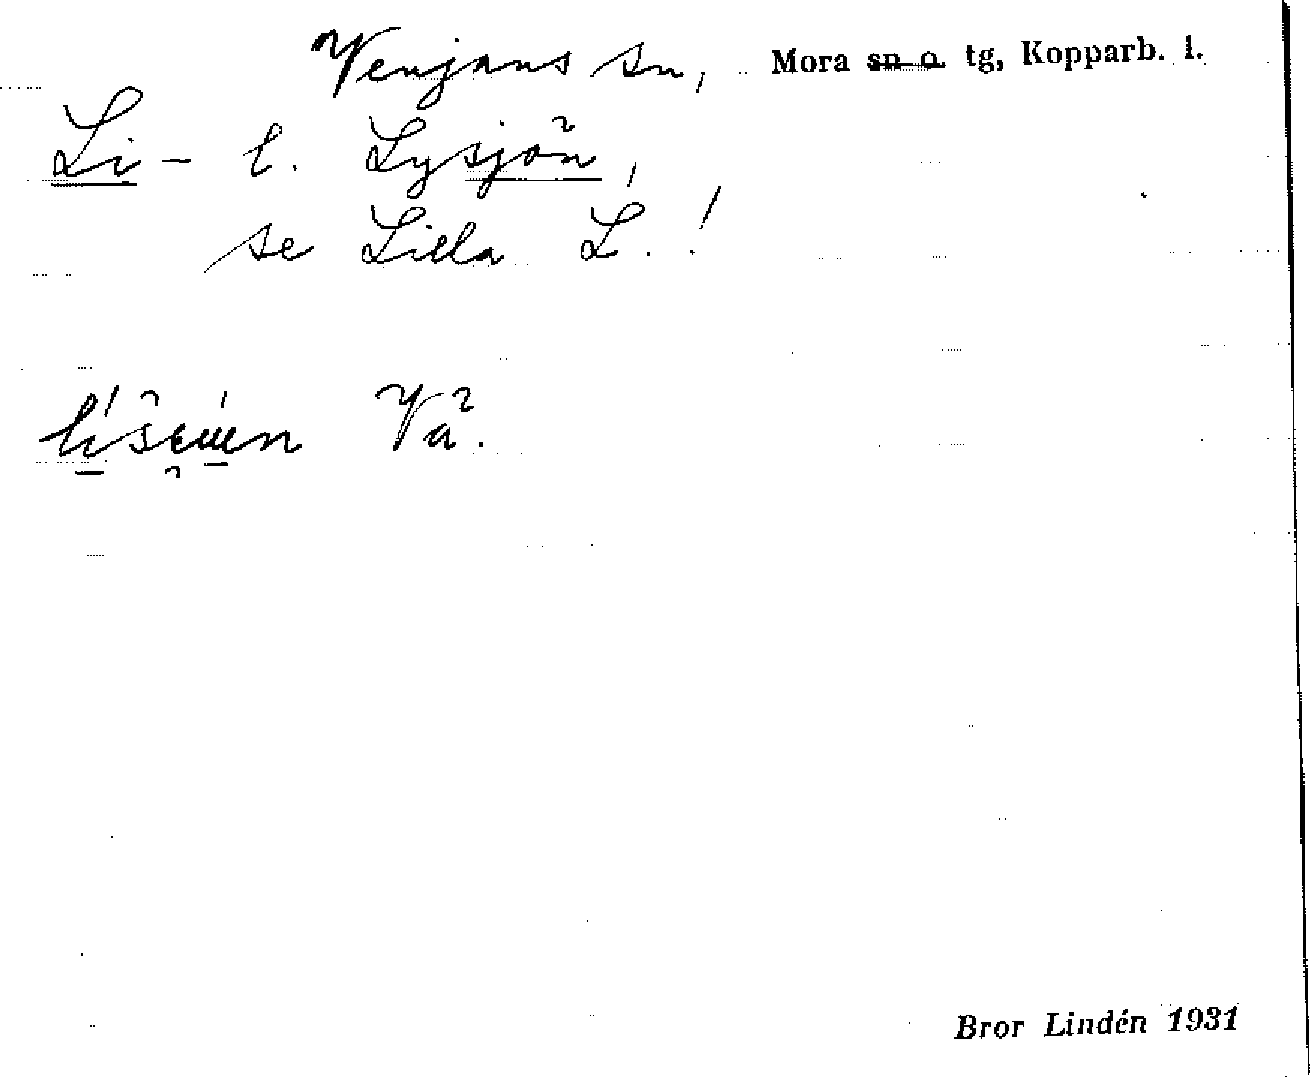 Venjans sn, Mora sn o. tg, Kopparb. l.
Li- l. Lysjön,
se Lilla L. !
Vå.
Bror Lindén 1931